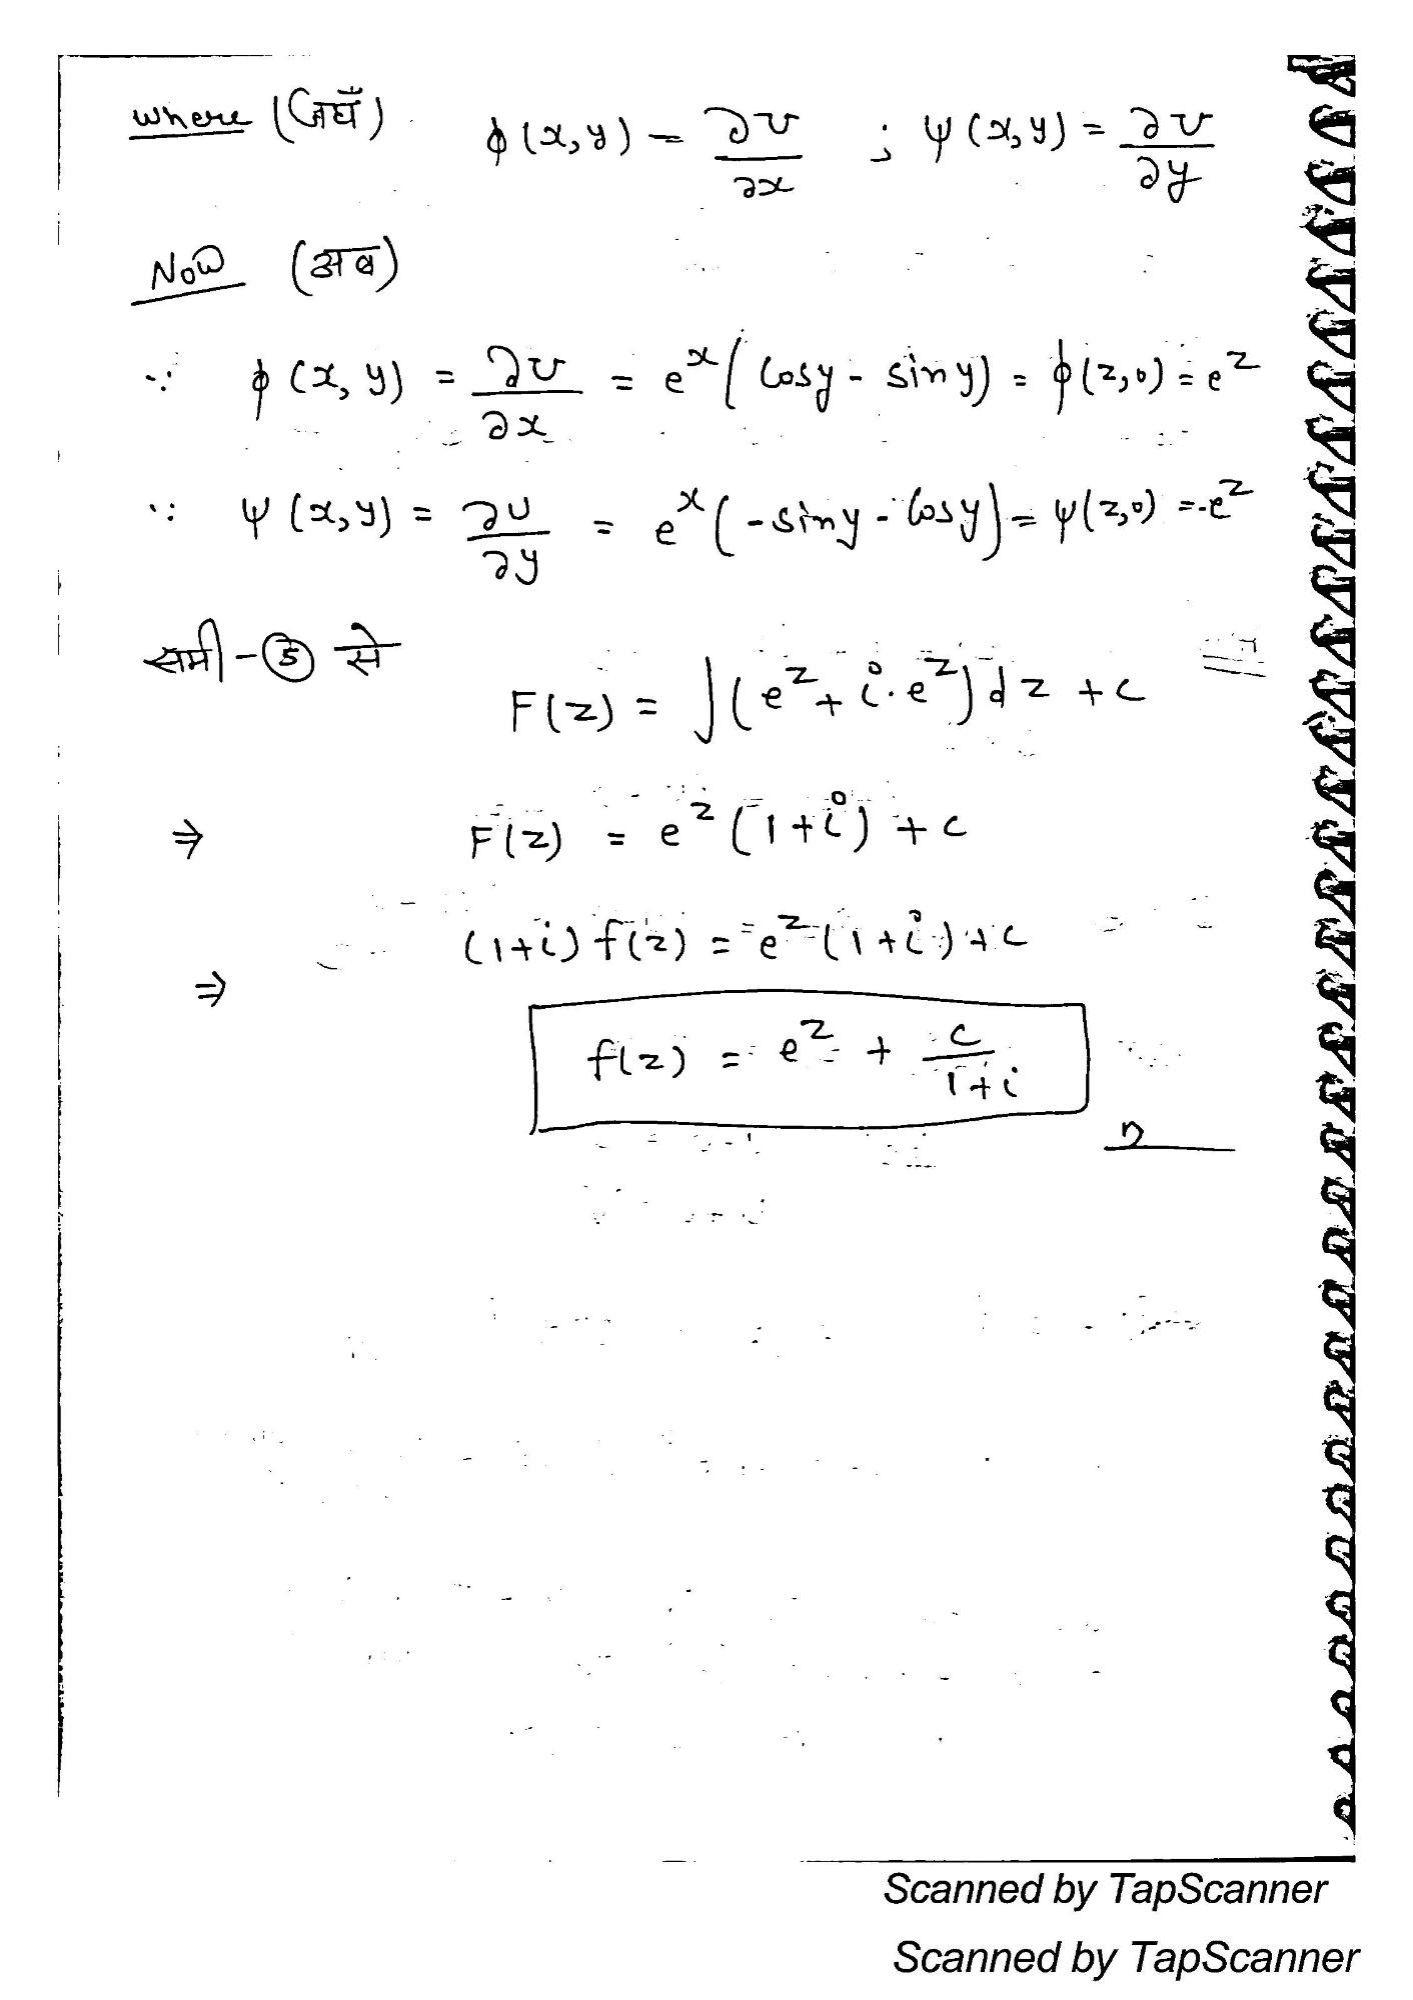 where (जहाँ) ϕ(x,y) = ∂v/∂x ; ψ(x,y) = ∂v/∂y
Now (अब)
∵ ϕ(x,y) = ∂v/∂x = e^x(cosy - siny) = ϕ(z,0) = e^z
∵ ψ(x,y) = ∂u/∂y = e^x(-siny - cosy) = ψ(z,0) = -e^z
समी - ⑤ से
F(z) = ∫(e^z + i.e^z)dz + c
⇒ F(z) = e^z(1+i) + c
(1+i) f(z) = e^z(1+i) + c
⇒
f(z) = e^z + c/(1+i)
Scanned by TapScanner
Scanned by TapScanner